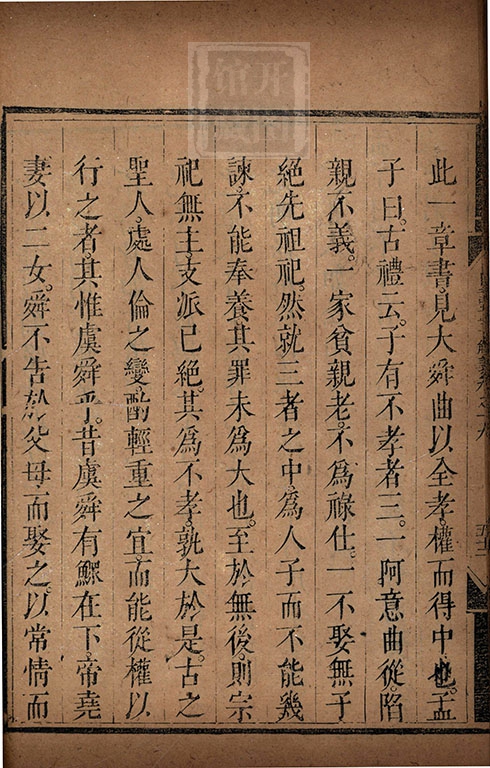 此一章書。見大舜曲以全孝。權而得中也。孟
子曰。古禮云。子有不孝者三。一阿意曲從。陷
親不義。一家貧親老。不為祿仕。一不娶無子
絕先祖祀。然就三者之中。為人子而不能幾
諫。不能奉養其罪未為大也。至於無後。則宗
祀無主。支派已絕。其為不孝。孰大於是。古之
聖人。處人倫之變。酌輕重之宜。而能從權以
行之者。其惟虞舜乎。昔虞舜有鰥在下。帝堯
妻以二女。舜不告於父母而娶之。以常情而